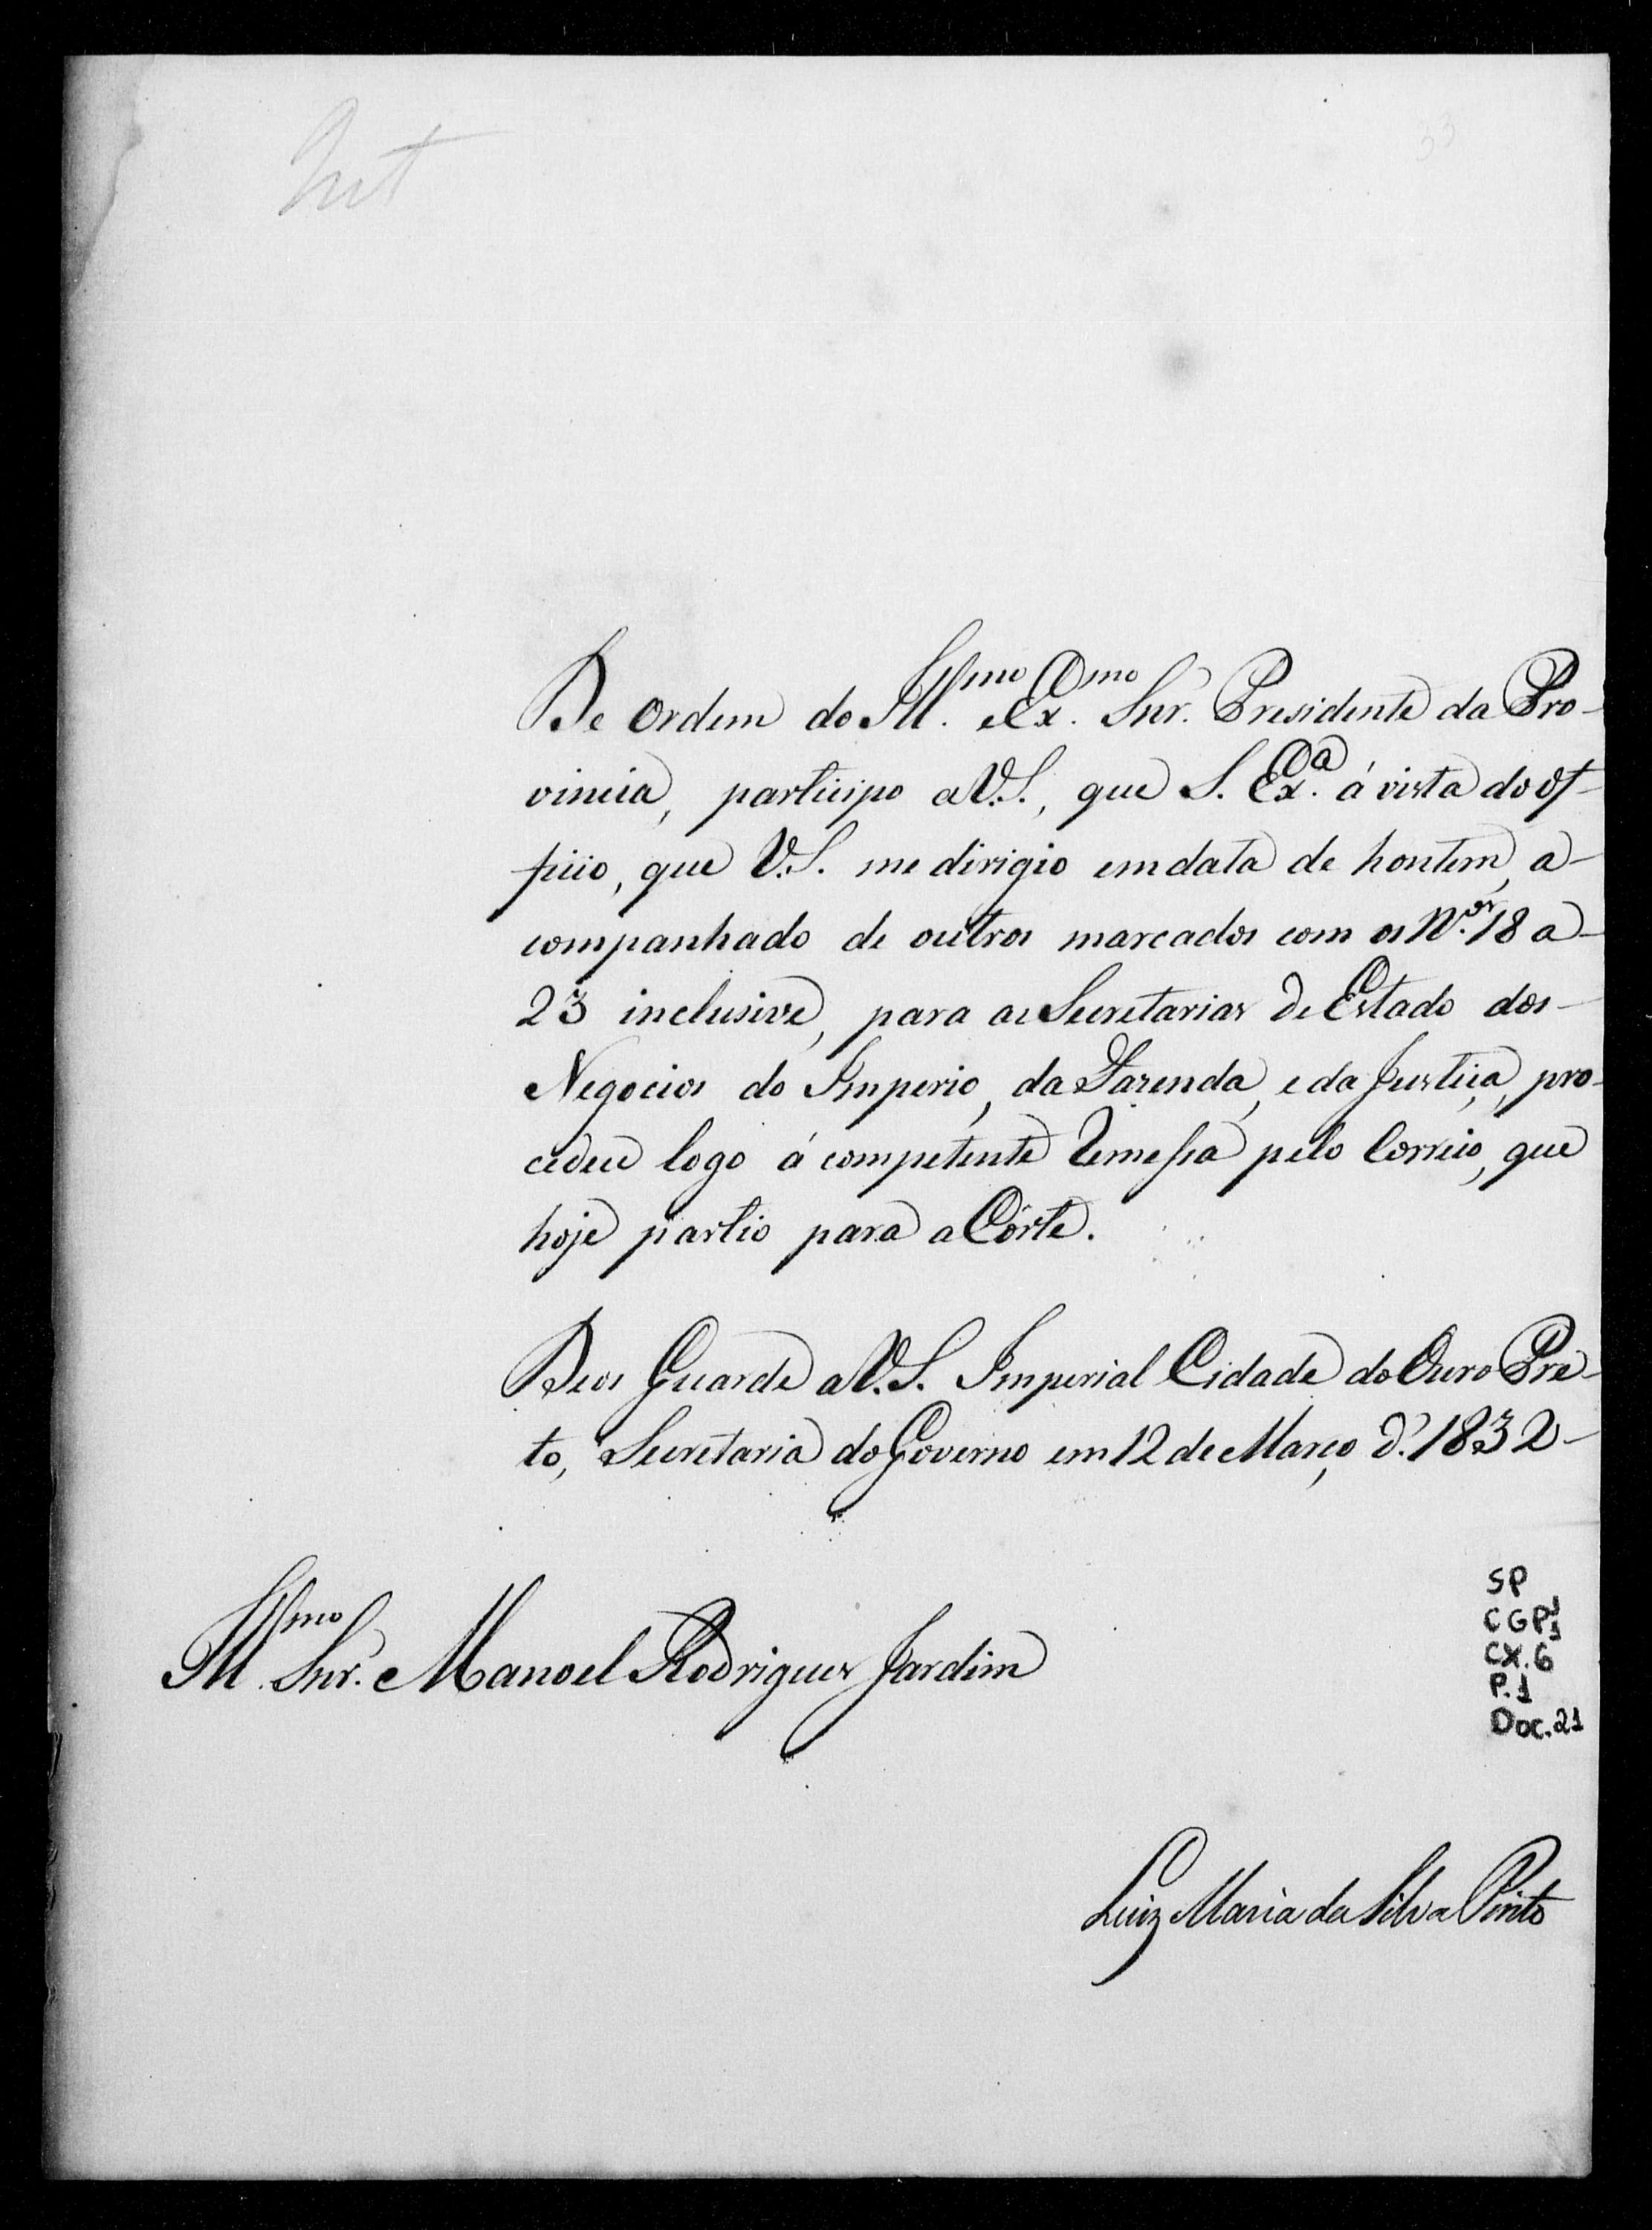 De Ordem do Ill.mo e Ex.mo Snr. Presidente da Pro-
vincia, participo a V.S., que S. Ex.a á vista do of-
ficio, que V.S. me dirigio em data de hontem, a-
companhado de outros marcados com os N.os 18 a
23 inclusive, para as Secretarias de Estado dos
Negocios do Imperio, da Fazenda, e da Justiça, pro-
cedeu logo á competente remessa pelo Correio, que
hoje partio para a Côrte.
Deos Guarde a V.S. Imperial Cidade do Ouro Pre-
to, Secretaria do Governo em 12 de Março d' 1832
Ill.mo Snr. Manoel Rodrigues Jardim
SP
CGP.1
CX.6
P.1
Doc.21
Luiz Maria da Silva Pinto